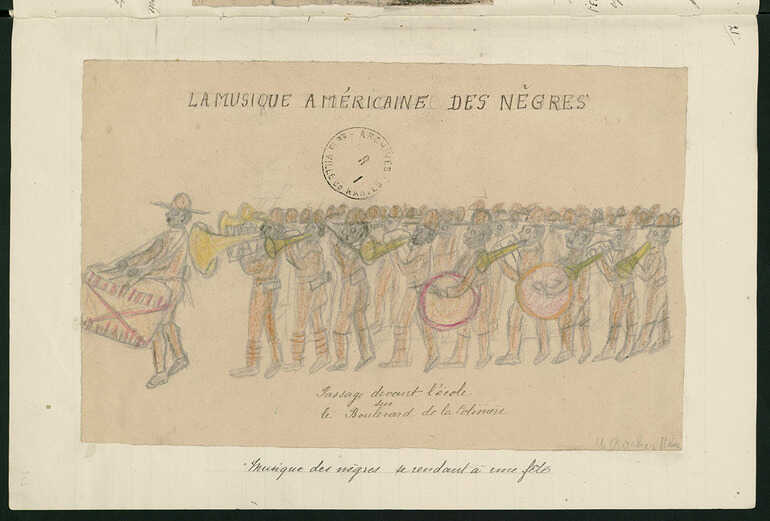 LA MUSIQUE AMÉRICAINE DES NÈGRES
ARCHIVES
Passage devant l'école
sur
le Boulevard de la Colinière
Musique des nègres se rendant à une fête